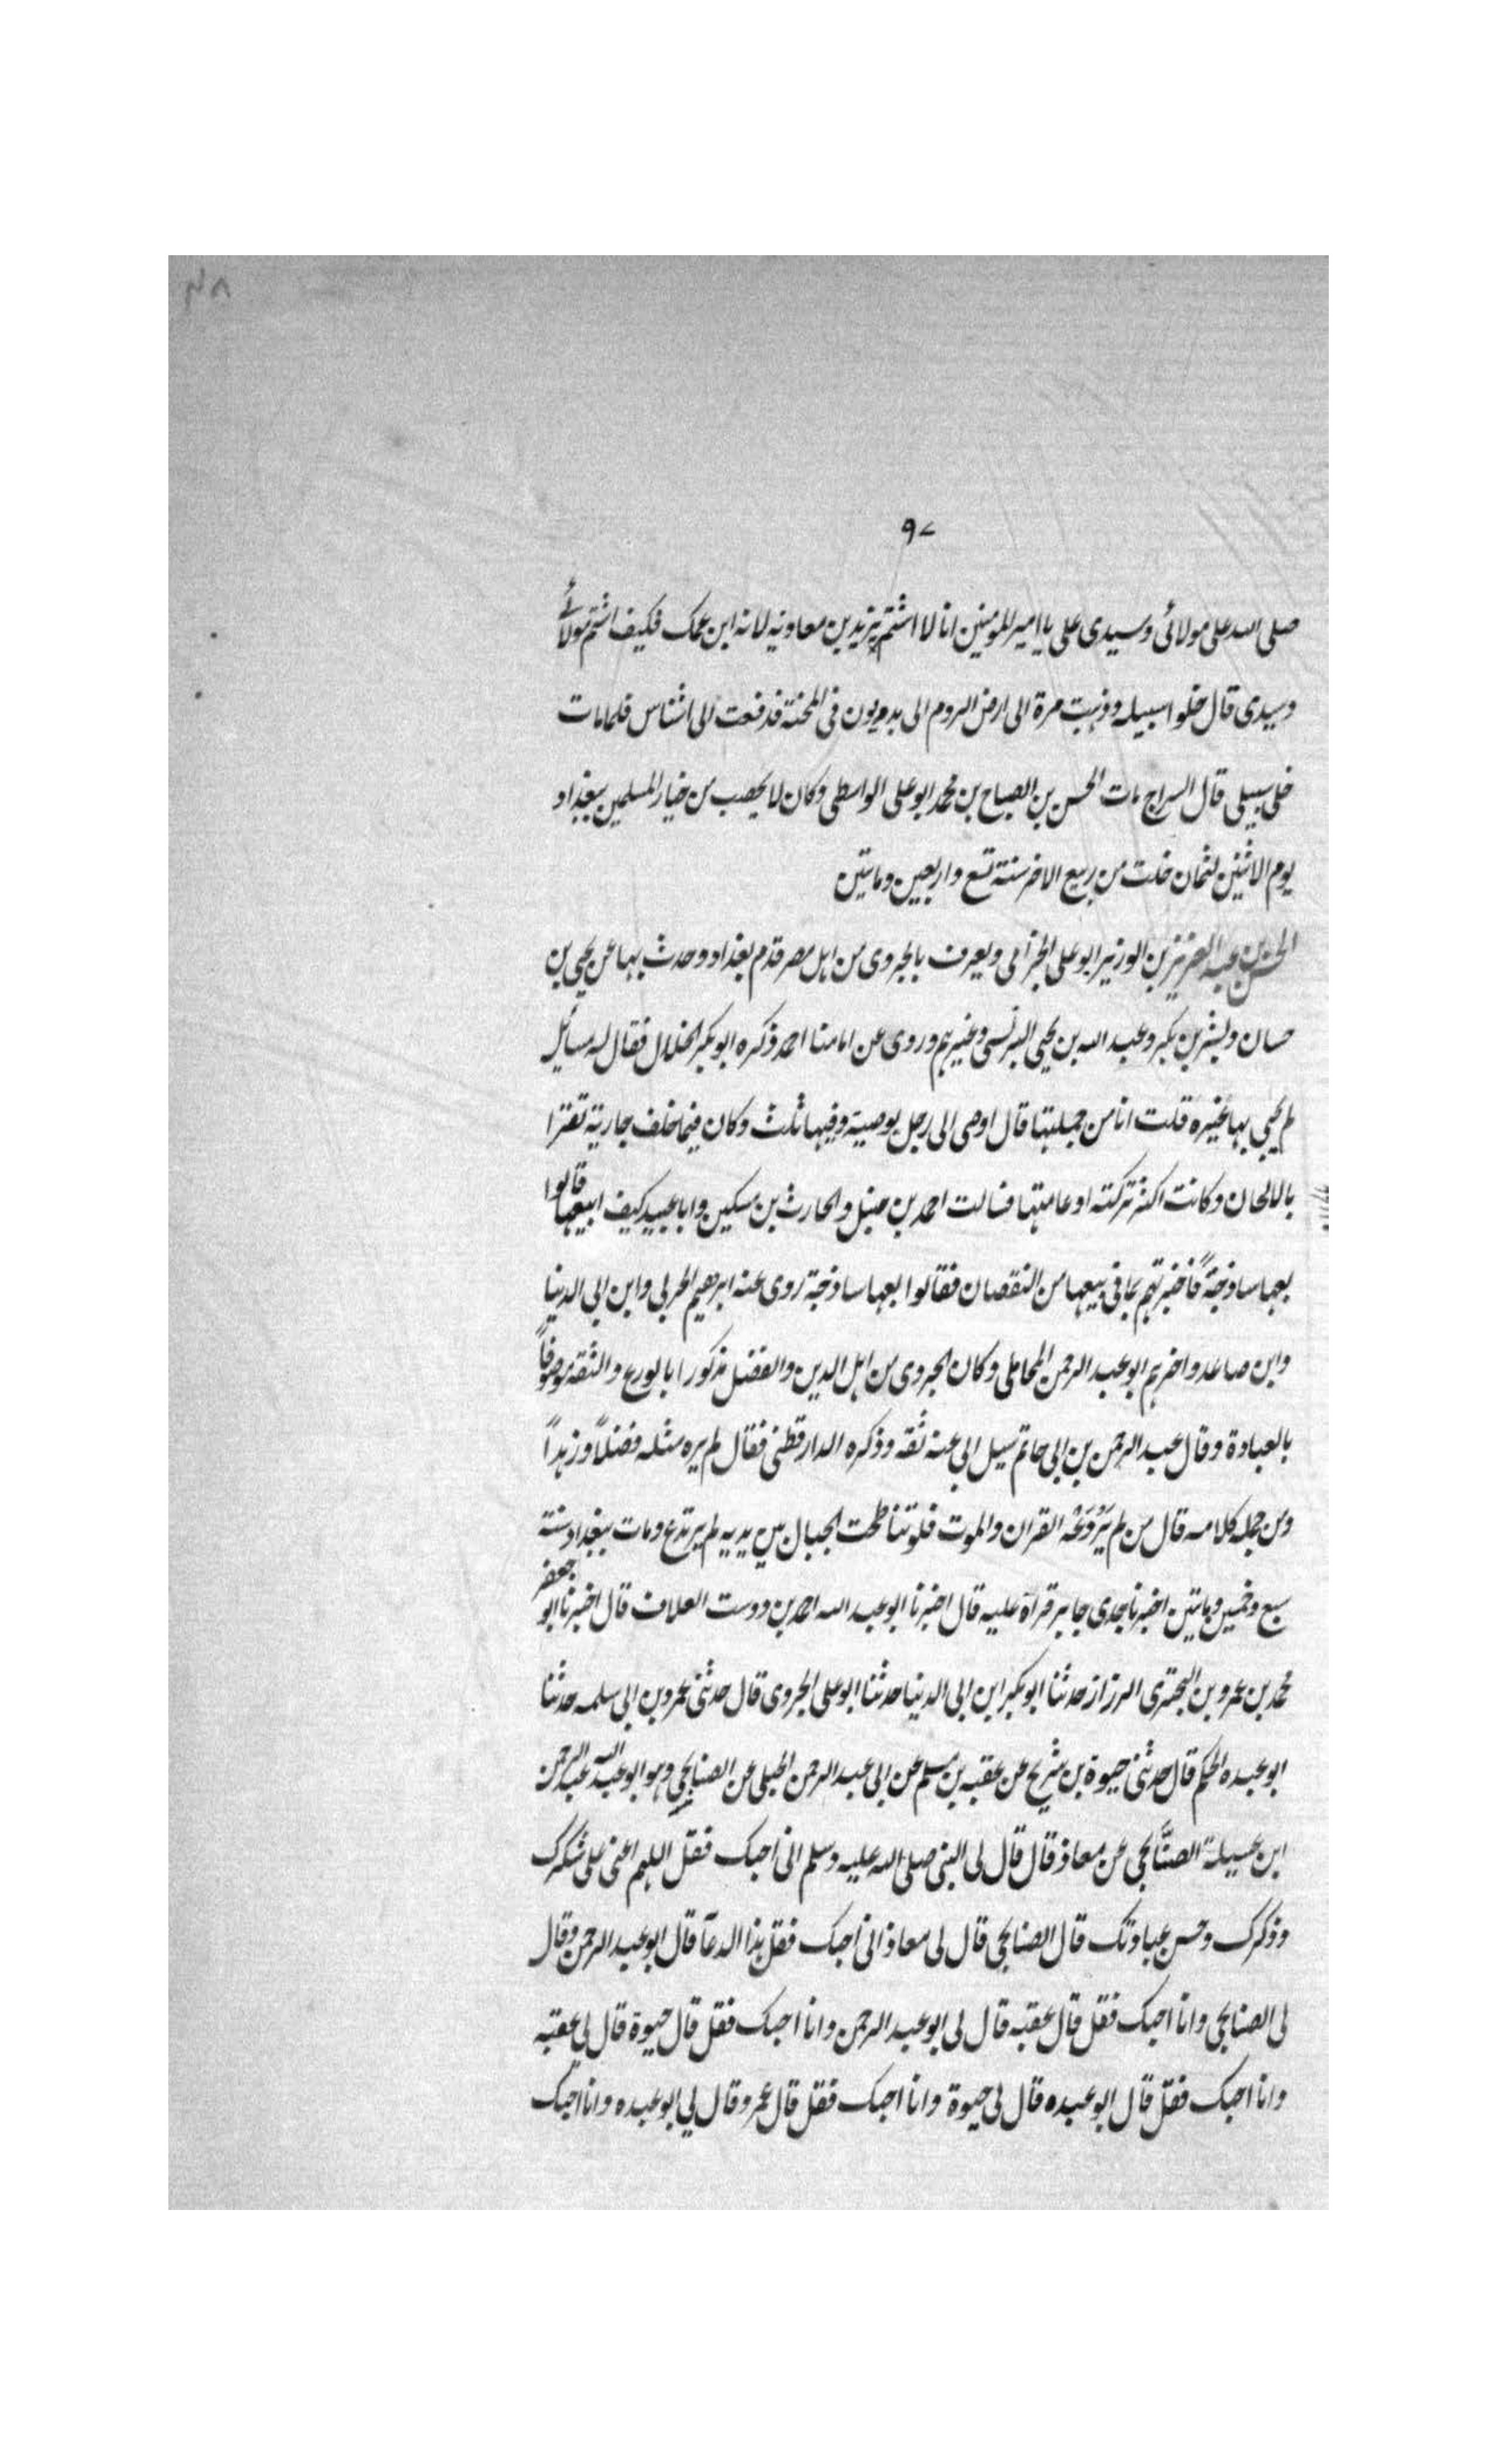 ٩٧
صلى الله على مولائى وسيدى على يا امير المومنين انا لا اشتم يزيد بن معاويه لانه ابن عمك فكيف اشتم مولائے
وسيدى قال خلوا سبيله وذهبت مرة الى ارض الروم الى بدريون فى المحنة فدفعت الى اشناس فلما مات
خلى سبيلى قال السراج مات الحسن بن الصباح بن محمد ابو على الواسطى وكان لا يخضب من خيار المسلمين ببغداد
يوم الاثنين لثمان خلت من ربيع الاخر سنة تسع واربعين وماتين
الحسن بن عبد العزيز بن الوزير ابو على الجزامى ويعرف بالجروى من اهل مصر قدم بغداد وحدث بها عن يحيى بن
حسان وبشر بن بكر وعبد الله بن يحيى البرلسى وغيرهم وروى عن امامنا احمد ذكره ابو بكر الخلال فقال له مسائل
لم يجى بها غيره قلت انا من جملتها قال اوصى الى رجل بوصية وفيها ثلث وكان فيما خلف جارية تقرا
بالالحان وكانت اكثر تركته او عامتها فسالت احمد بن حنبل والحارث بن مسكين وابا عبيد كيف ابيعها قالوا
بعها ساذجةً فاخبرتهم بما فى بيعها من النقصان فقالوا بعها ساذجة روى عنه ابرهيم الحربى وابن ابى الدنيا
وابن صاعد واخرهم ابو عبد الرحمن المحاملى وكان الجروى من اهل الدين والفضل مذكورا بالورع والثقه موصوفاً
بالعبادة وقال عبد الرحمن بن ابى حاتم سيل ابى عنه ثقه وذكره الدارقطنى فقال لم يره مثله فضلاً وزهداً
ومن جمله كلامه قال من لم يَرْدَعْه القران والموت فلو تناطحت الجبال بين يديه لم يرتدع ومات ببغداد سنة
سبع وخمسين وماتين اخبرنا جدى جابر قراة عليه قال اخبرنا ابو عبد الله احمد بن دوست العلاف قال اخبرنا ابو جعفر
محمد بن عمرو بن البخترى الرزاز حدثنا ابو بكر ابن ابى الدنيا حدثنا ابو على الجروى قال حدثنى عمرو بن ابى سلمه حدثنا
ابو عبده الحكم قال حدثنى حيوة بن شريح عن عقبه بن مسلم عن ابى عبد الرحمن الحبلى عن الصنابحى وهو ابو عبد الله عبد الرحمن
ابن عسيلة الصنَّابحى عن معاذ قال قال لى النبى صلى الله عليه وسلم انى احبك فقل اللهم اعنى على شكرك
وذكرك وحسن عبادتك قال الصنابحى قال لى معاذ انى احبك فقل هذا الدعآ قال ابو عبد الرحمن وقال
لى الصنابحى وانا احبك فقل قال عقبه قال لى ابو عبد الرحمن وانا احبك فقل قال حيوة قال لى عقبه
وانا احبك فقل قال ابو عبده قال لى حيوة وانا احبك فقل قال عمرو قال لى ابو عبده وانا احبك